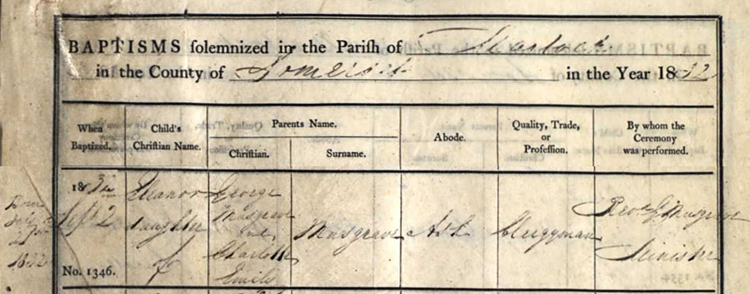 BAPTISMS solemnized in the Parish of Martock
in the County of Somerset in the Year 1832
When Baptized.
Child's Christian Name.
Parents Name.
Christian.
Surname.
Abode.
Quality, Trade, or Profession.
By whom the Ceremony was performed.
1832
Sept 2
No. 1346.
Eleanor
daughter
of
George
Musgrave
and
Charlotte
Emily
Musgrave
Ash
Clergyman
Revd G Musgrave
Minister
Born
1832